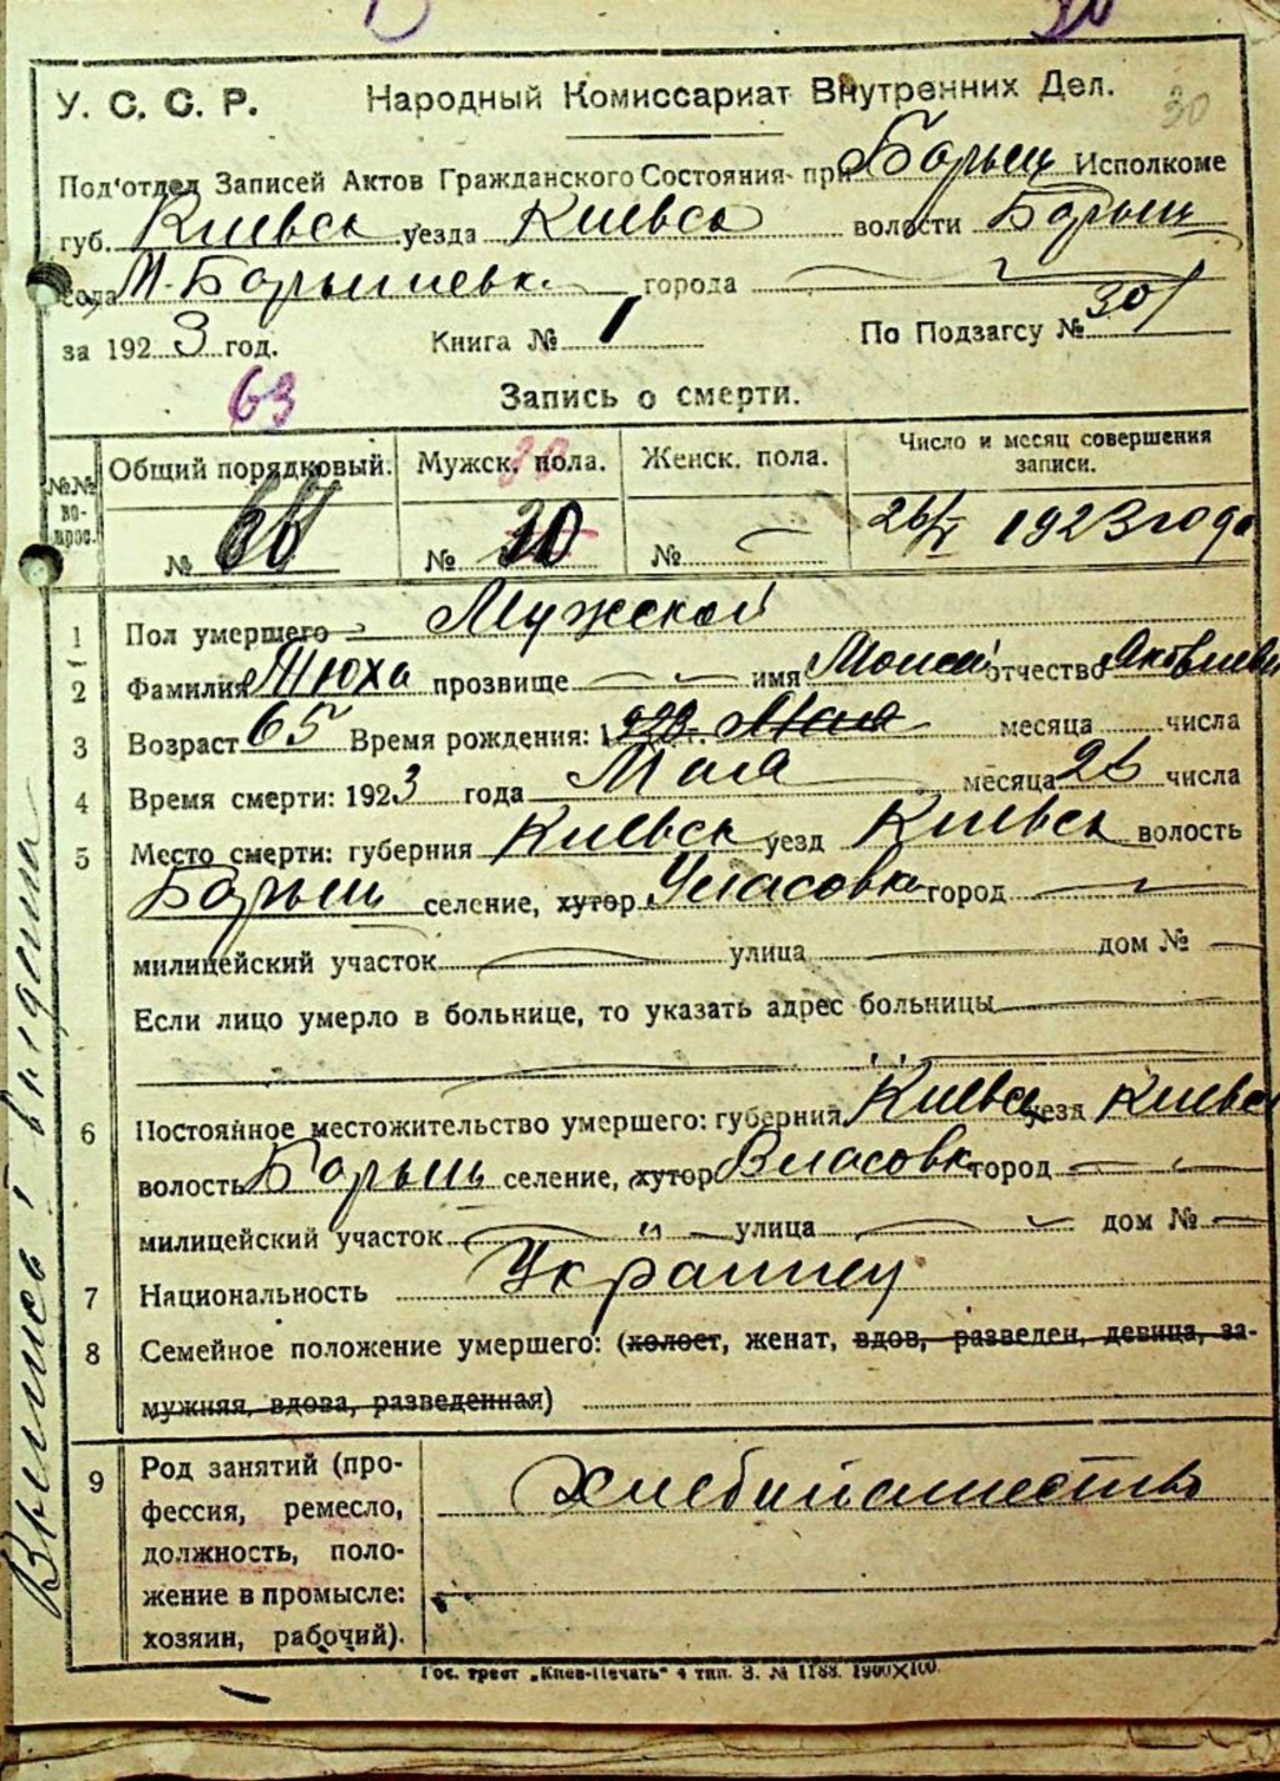 30
У. С. С. Р. Народный Комиссариат Внутренних Дел. 30
Под'отдел Записей Актов Гражданского Состояния при Барыш Исполкоме
губ. Киевск уезда Киевск волости Барыш
села М. Барышевк. города
за 1923 год. Книга № 1 По Подзагсу № 301
63 Запись о смерти.
№№ во-прос. Общий порядковый. Мужск. пола. Женск. пола. Число и месяц совершения записи.
№ № 30 № 26/V 1923 года
1 Пол умершего Мужской
2 Фамилия Тюха прозвище имя Моисей отчество Яковлев
3 Возраст 65 Время рождения: 1923 г. Мая месяца числа
4 Время смерти: 1923 года Мая месяца 26 числа
5 Место смерти: губерния Киевск уезд Киевск волость
Барыш селение, хутор Власовка город
милицейский участок улица дом №
Если лицо умерло в больнице, то указать адрес больницы
6 Постоянное местожительство умершего: губерния Киевск уезд Киевск
волость Барыш селение, хутор Власовк город
милицейский участок " улица дом №
7 Национальность Украинец
8 Семейное положение умершего: (холост, женат, вдов, разведен, девица, за-
мужняя, вдова, разведенная)
9 Род занятий (про-
фессия, ремесло,
должность, поло-
жение в промысле:
хозяин, рабочий).
Гос. трест „Киев-Печать" 4 тип. З. № 1188. 1900×100.